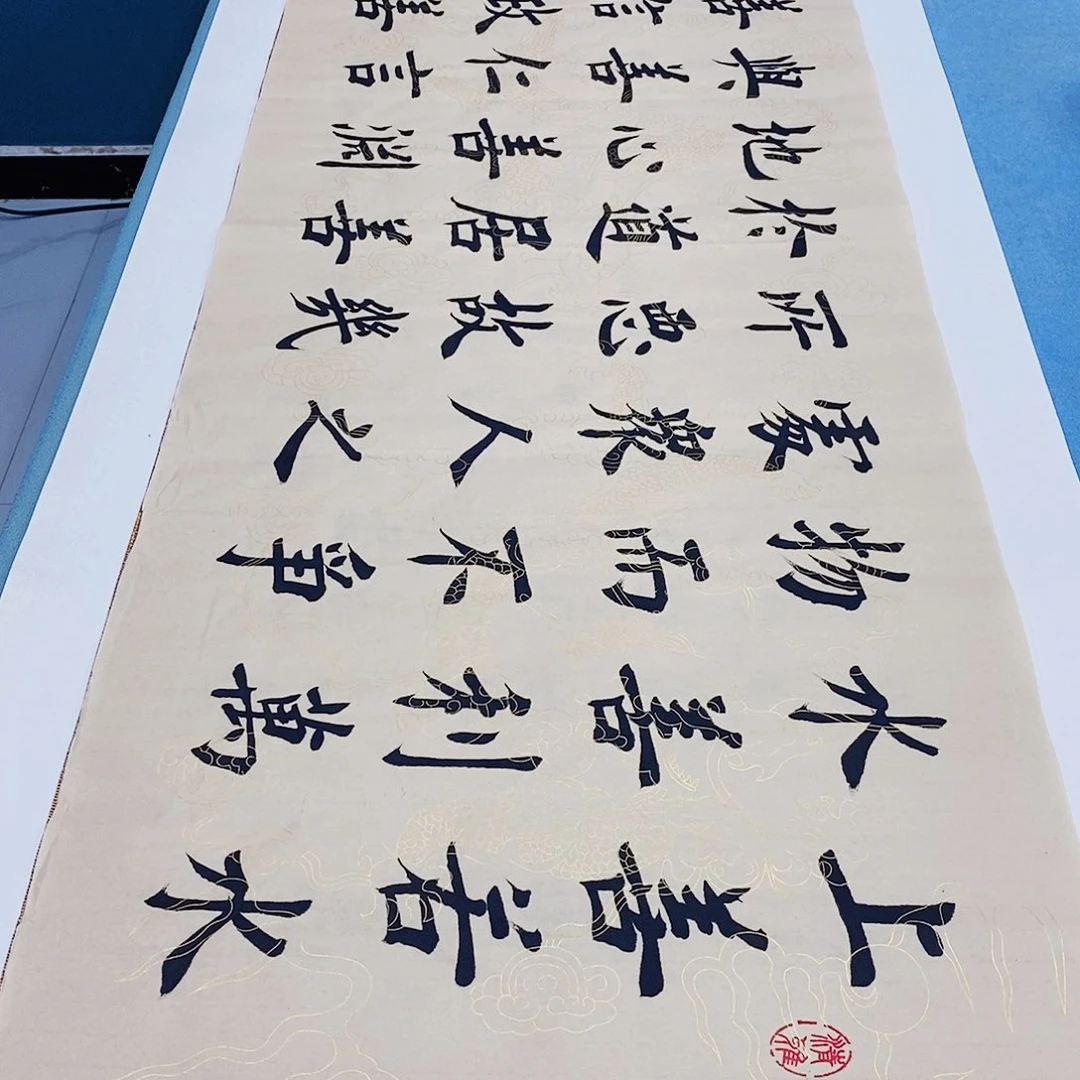 上善若水
水善利萬
物而不爭
處衆人之
所惡故幾
於道居善
地心善淵
與善仁言
善信政善